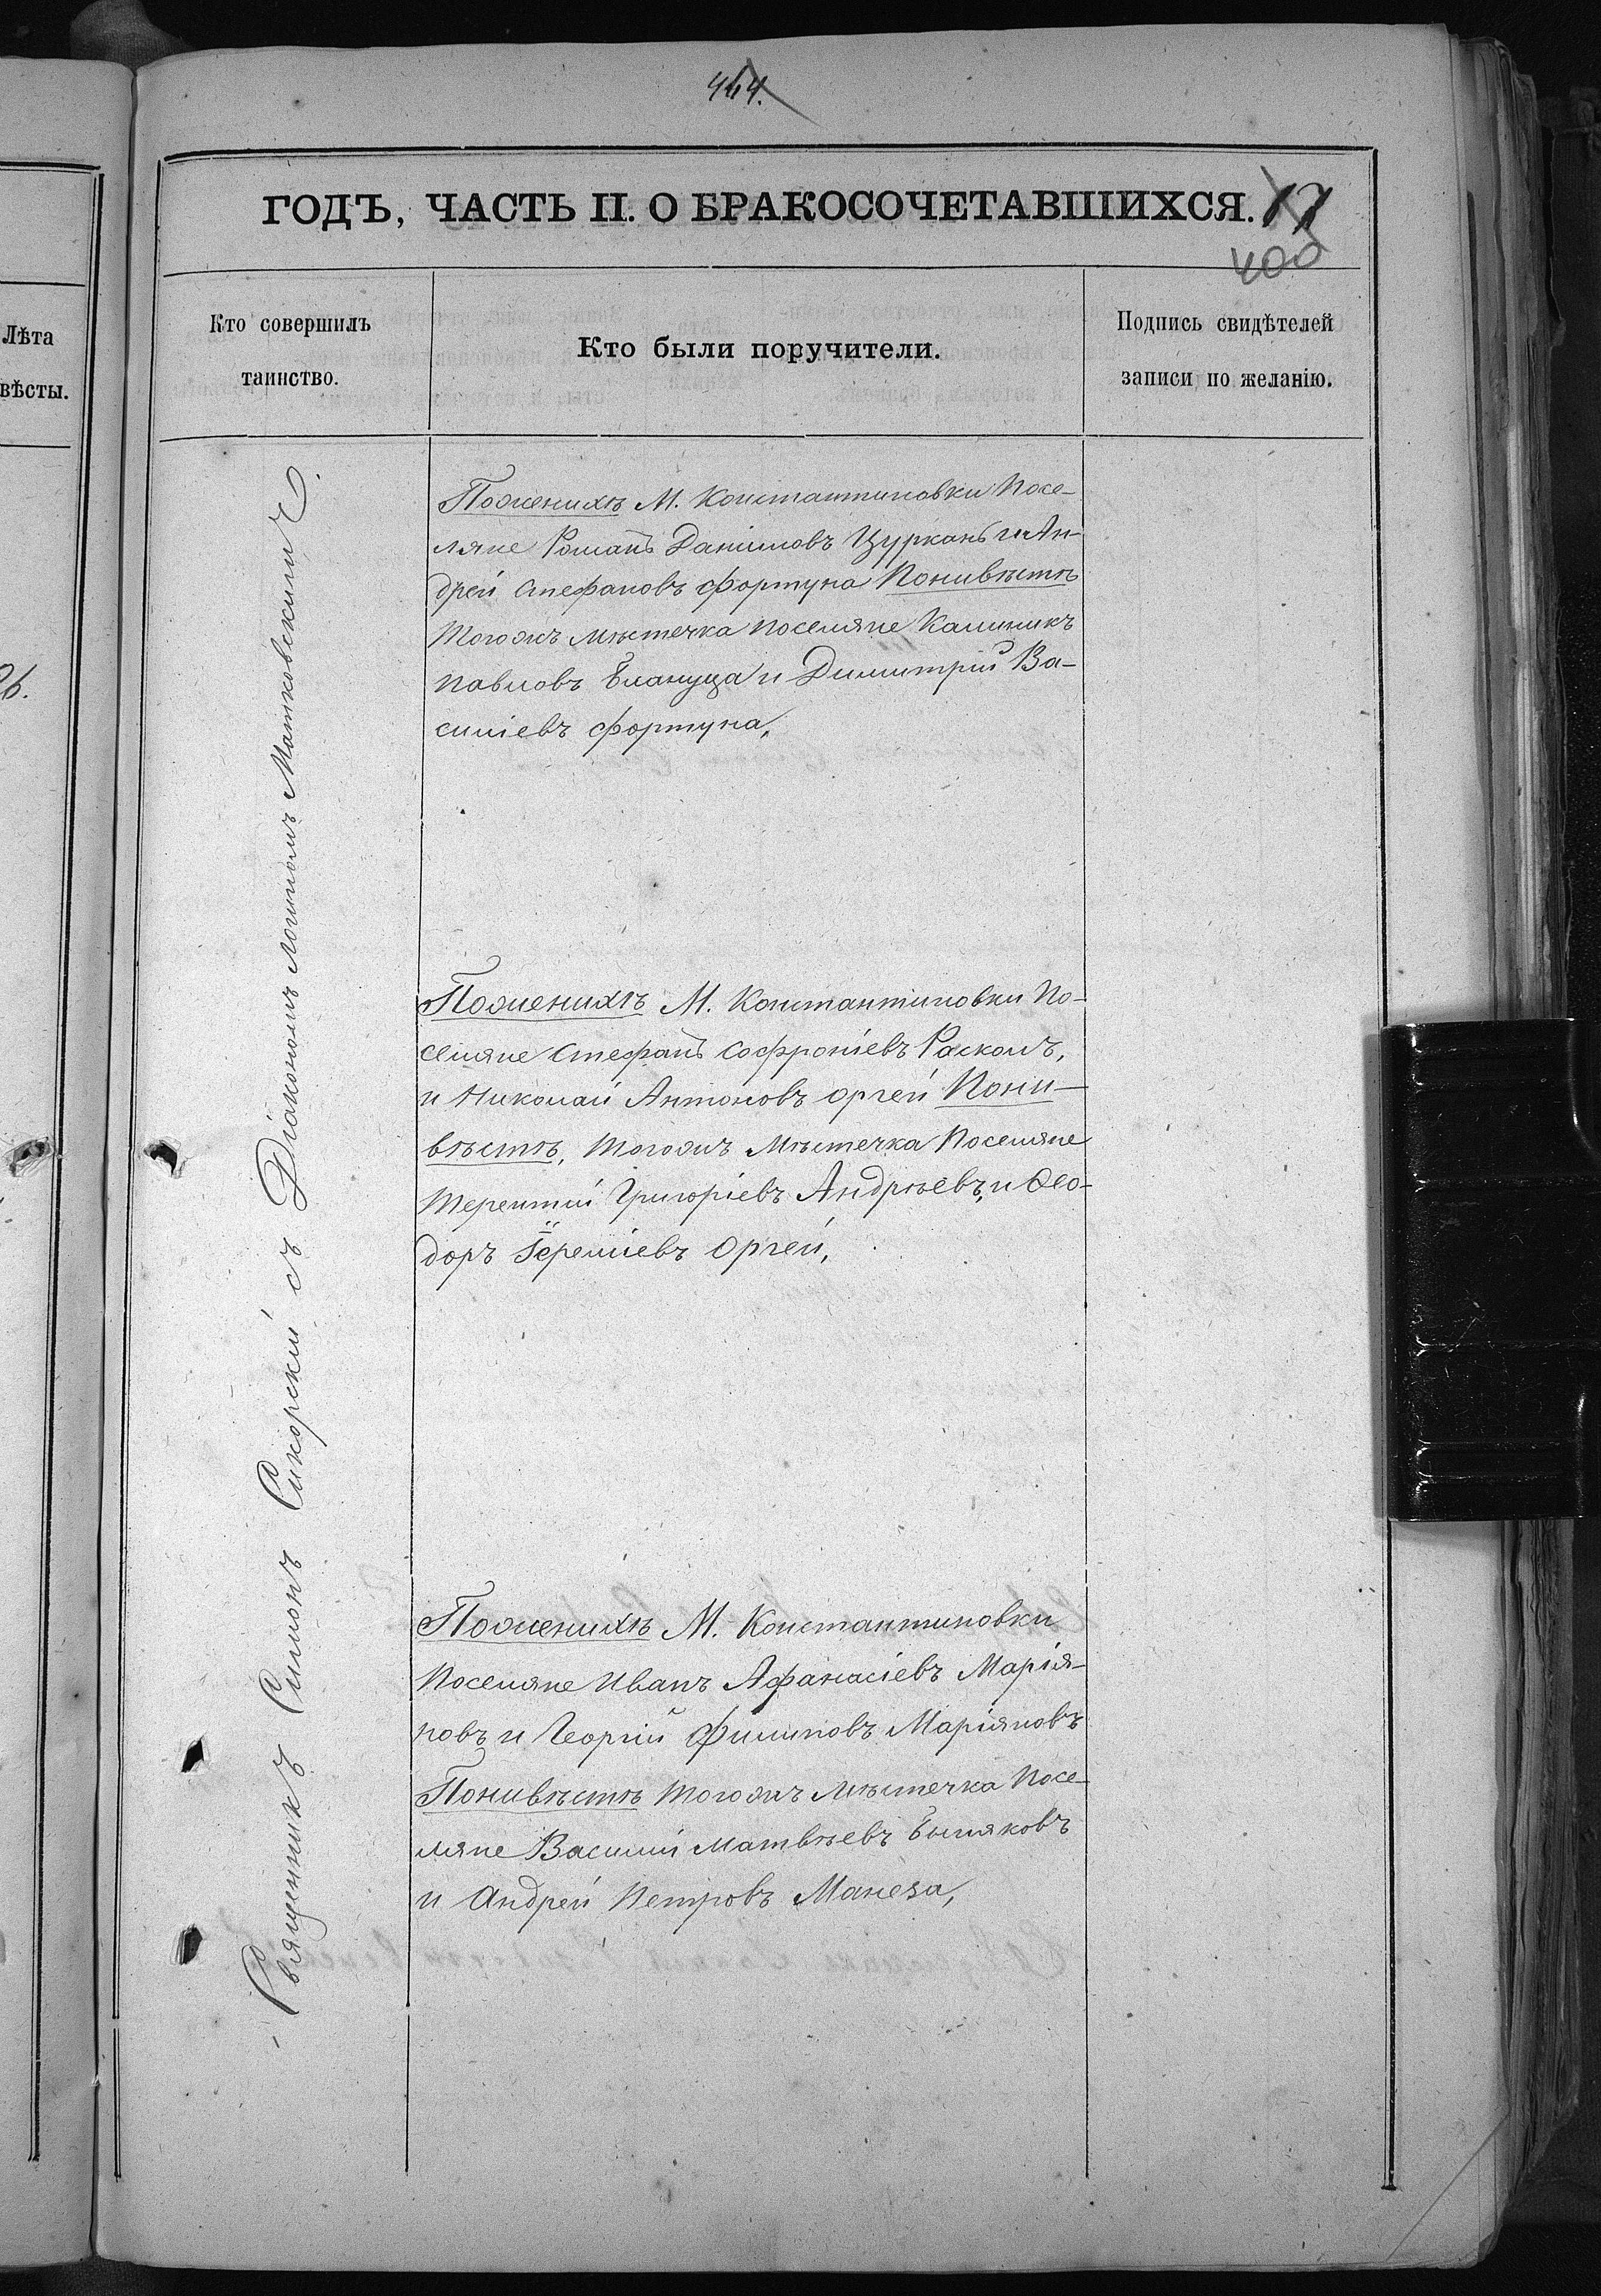 464.
ГОДЪ, ЧАСТЬ II. О БРАКОСОЧЕТАВШИХСЯ. 17
400
Лѣта
вѣсты.
26.
Кто совершилъ
таинство.
Кто были поручители.
Подпись свидѣтелей
записи по желанію.
Священникъ Симонъ Сикорскій съ Діакономъ Логиномъ Матковскимъ
Поженихѣ М. Константиновки посе-
ляне Романъ Даниловъ Цурканъ и Ан-
дрей Стефановъ Фортуна Понивѣстѣ
тогожъ мѣстечка поселяне Калиникъ
Павловъ Блануца и Димитрій Ва-
силіевъ Фортуна,
Поженихѣ М. Константиновки по-
селяне Стефанъ Софроніевъ Расколъ,
и Николай Антоновъ Оргей Пони-
вѣстѣ, тогожъ мѣстечка поселяне
Терентій Григоріевъ Андрѣевъ, и Ѳео-
доръ Іереміевъ Оргей,
Поженихѣ М. Константиновки
поселяне Иванъ Афанасіевъ Марія-
новъ и Георгій Филиповъ Маріяновъ
Понивѣстѣ тогожъ мѣстечка посе-
ляне Василій Матвѣевъ Быляковъ
и Андрей Петровъ Манеза,